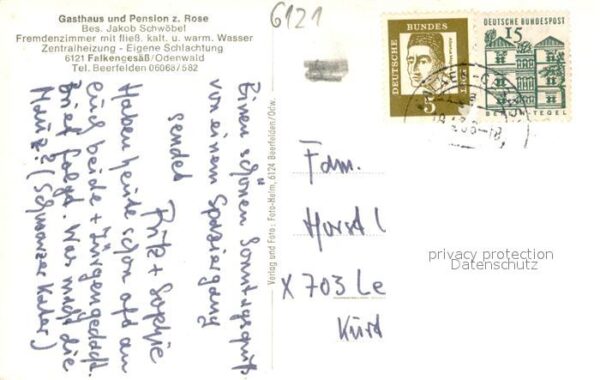 Gasthaus und Pension z. Rose
Bes. Jakob Schwöbel
Fremdenzimmer mit fließ. kalt. u. warm. Wasser
Zentralheizung - Eigene Schlachtung
6121 Falkengesäß/Odenwald
Tel. Beerfelden 06068/582
6121
Einen schönen Sonntagsgruß
von einem Spaziergang
sendet
Fritz + Sophie
Haben heute schon oft an
Euch beide + Jürgen gedacht.
Brief folgt. Was macht die
Munz? (Schwarzer Kater)
Verlag und Foto: Foto-Helm, 6124 Beerfelden/Odw.
DEUTSCHE BUNDES
5
DEUTSCHE BUNDESPOST
15
TEGEL
Fam.
Horst
X 703 Le
Kurt
privacy protection
Datenschutz